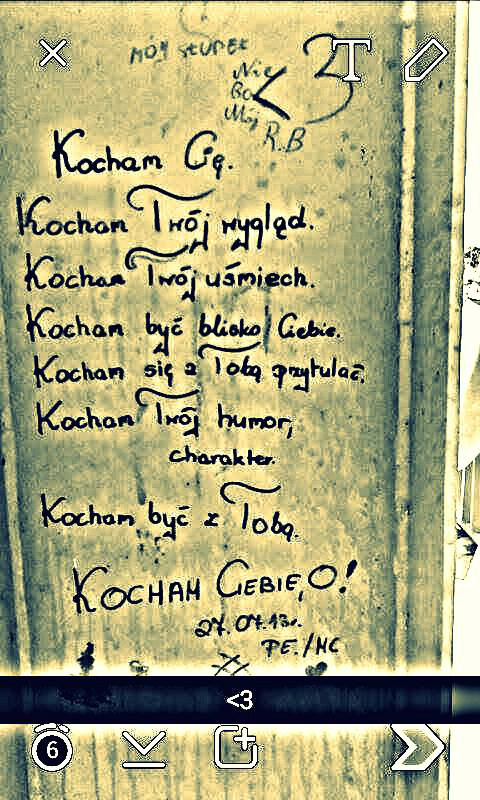 MÓJ SŁUPEK
Nie
Bo
Mój
<3
R.B
Kocham Cię.
Kocham Twój wygląd.
Kocham Twój uśmiech.
Kocham być blisko Ciebie.
Kocham się z Tobą przytulać.
Kocham Twój humor,
charakter.
Kocham być z Tobą.
KOCHAM CIEBIE, O!
27.07.13r.
PE./MC
<3
6